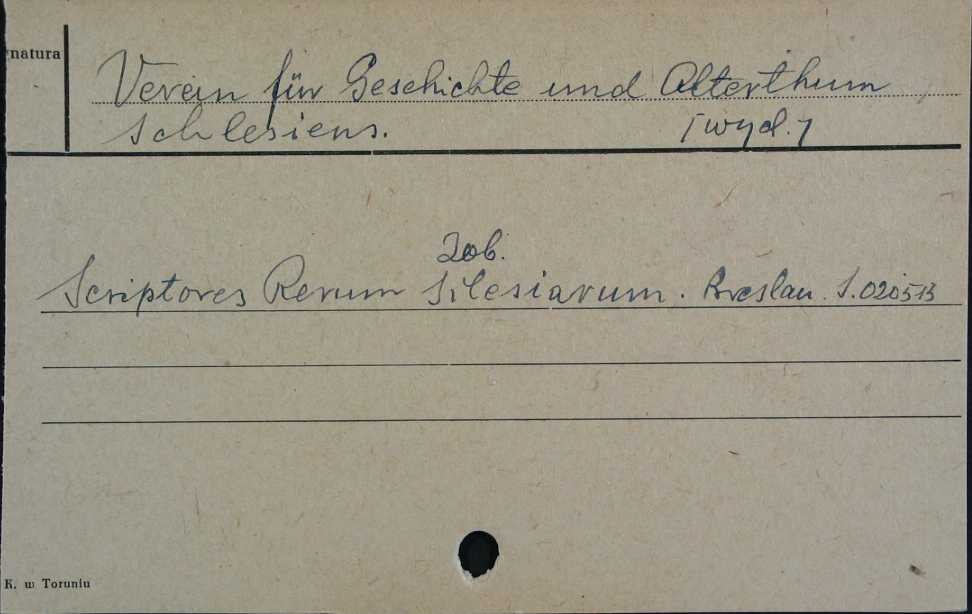 natura
Verein für Geschichte und Alterthum
Schlesiens. [wyd.]
Zob.
Scriptores Rerum Silesiarum. Breslau. S.020513
K. w Toruniu